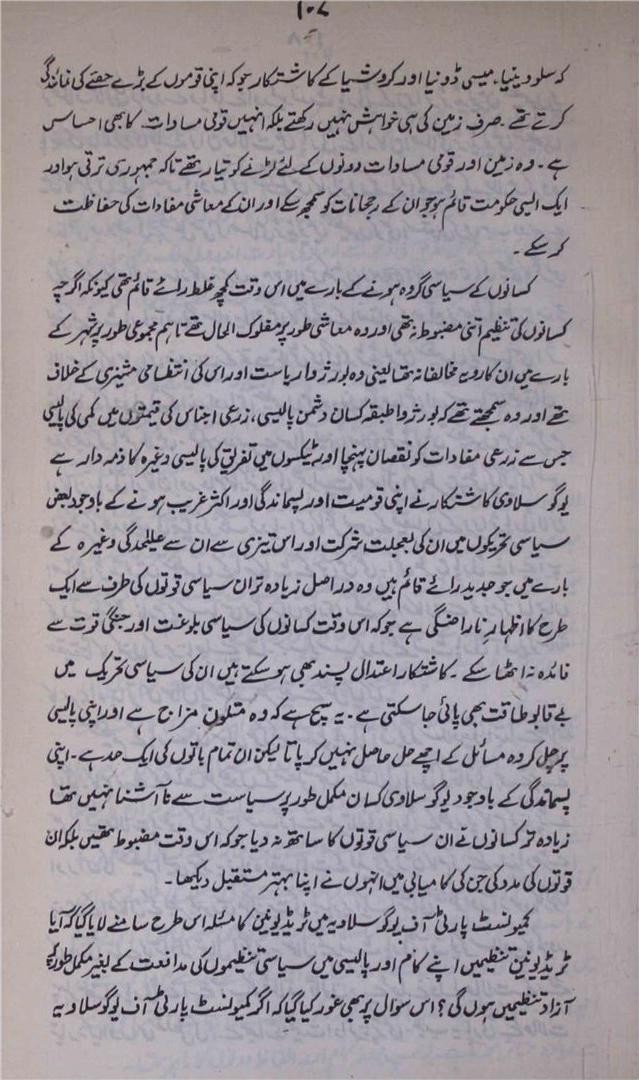 ۱۰۷
کہ سلووینیا، میسی ڈونیا اور کروشیا کے کاشتکار جو کہ اپنی قوموں کے بڑے حصّے کی نمائندگی
کرتے تھے۔ صرف زمین کی ہی خواہش نہیں رکھتے بلکہ انہیں قومی مساوات کا بھی احساس
ہے۔ وہ زمین اور قومی مساوات دونوں کے لئے لڑنے کو تیار تھے تاکہ جمہوری ترقی ہو اور
ایک ایسی حکومت قائم ہو جو ان کے رجحانات کو سمجھ سکے اور ان کے معاشی مفادات کی حفاظت
کر سکے۔
کسانوں کے سیاسی گروہ ہونے کے بارے میں اس وقت کچھ غلط رائے قائم تھی کیونکہ اگرچہ
کسانوں کی تنظیم اتنی مضبوط نہ تھی اور وہ معاشی طور پر مفلوک الحال تھے تاہم مجموعی طور پر شہر کے
بارے میں ان کا رویہ مخالفانہ تھا یعنی وہ بورژوا ریاست اور اس کی انتظامی مشینری کے خلاف
تھے اور وہ سمجھتے تھے کہ بورژوا طبقہ کسان دشمن پالیسی، زرعی اجناس کی قیمتوں میں کمی کی پالیسی
جس سے زرعی مفادات کو نقصان پہنچا اور ٹیکسوں میں تفریق کی پالیسی وغیرہ کا ذمہ دار ہے
یوگوسلاوی کاشتکار نے اپنی قومیت اور پسماندگی اور اکثر غریب ہونے کے باوجود بعض
سیاسی تحریکوں میں ان کی بعجلت شرکت اور اس تیزی سے ان سے علیٰحدگی وغیرہ کے
بارے میں جو جدید رائے قائم ہیں وہ دراصل زیادہ تر ان سیاسی قوتوں کی طرف سے ایک
طرح کا اظہارِ ناراضگی ہے جو کہ اس وقت کسانوں کی سیاسی بلوغت اور جنگی قوت سے
فائدہ نہ اٹھا سکے۔ کاشتکار اعتدال پسند بھی ہو سکتے ہیں ان کی سیاسی تحریک میں
بے قابو طاقت بھی پائی جا سکتی ہے۔ یہ سچ ہے کہ وہ متلون مزاج ہے اور اپنی پالیسی
پر چل کر وہ مسائل کے اچھے حل حاصل نہیں کر پاتا لیکن ان تمام باتوں کی ایک حد ہے۔ اپنی
پسماندگی کے باوجود یوگوسلاوی کسان مکمل طور پر سیاست سے ناآشنا نہیں تھا
زیادہ تر کسانوں نے ان سیاسی قوتوں کا ساتھ نہ دیا جو کہ اس وقت مضبوط تھیں بلکہ ان
قوتوں کی مدد کی جن کی کامیابی میں انہوں نے اپنا بہتر مستقبل دیکھا۔
کمیونسٹ پارٹی آف یوگوسلاویہ میں ٹریڈ یونین کا مسئلہ اس طرح سامنے لایا گیا کہ آیا
ٹریڈ یونین تنظیمیں اپنے کام اور پالیسی میں سیاسی تنظیموں کی مدافعت کے بغیر مکمل طور پر
آزاد تنظیمیں ہوں گی؟ اس سوال پر بھی غور کیا گیا کہ اگر کمیونسٹ پارٹی آف یوگوسلاویہ